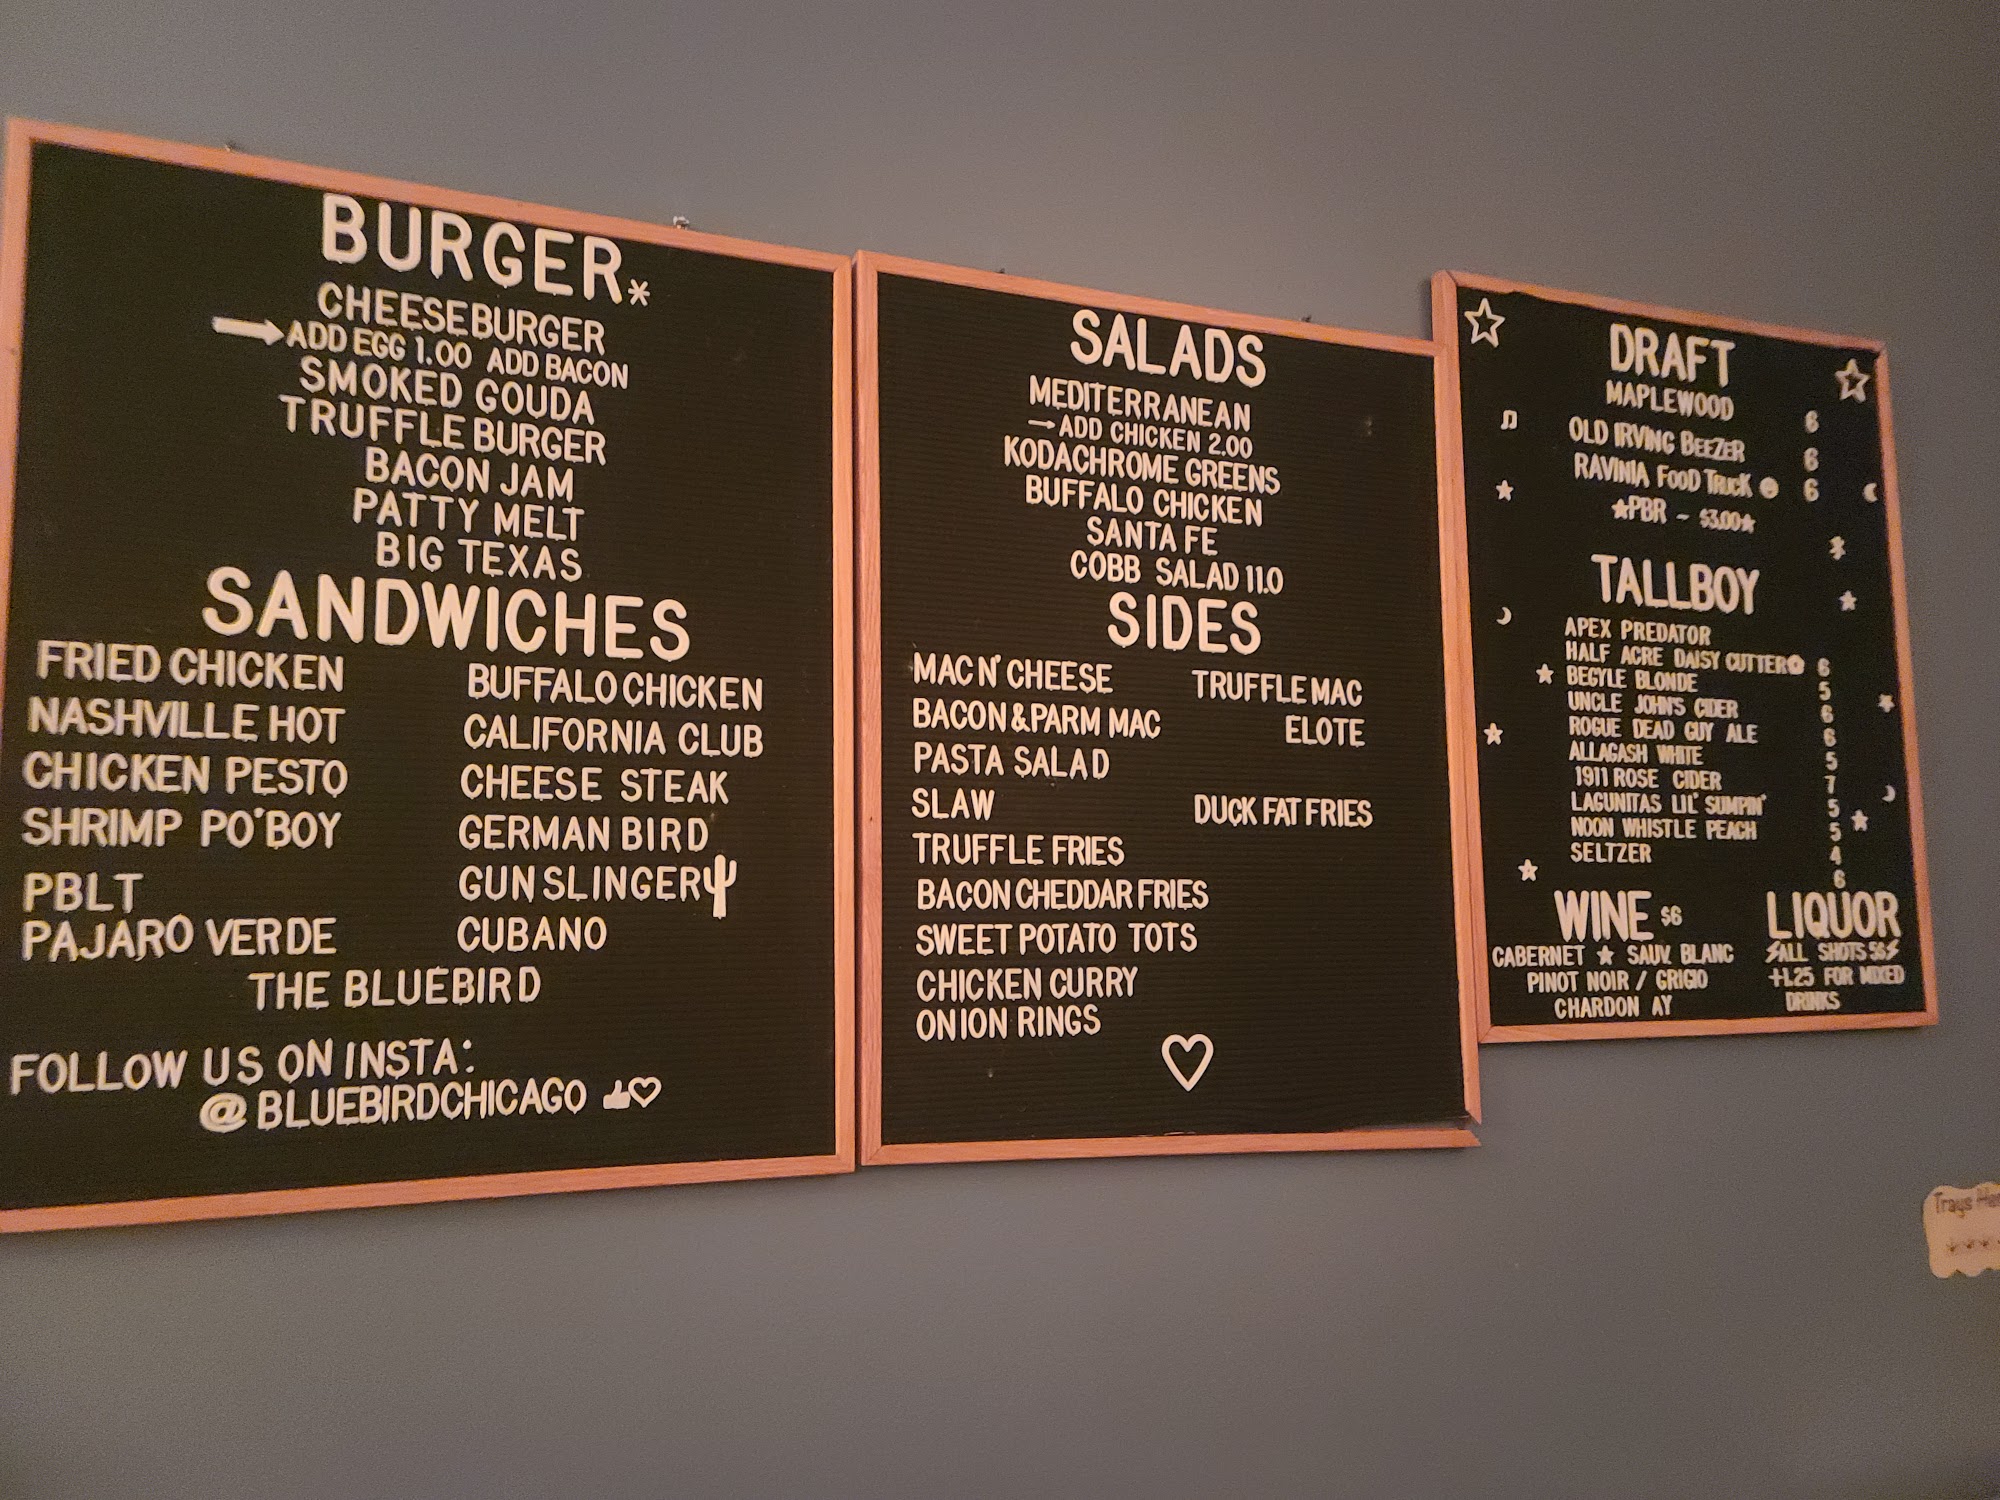 BURGER*
CHEESEBURGER
ADD EGG 1.00 ADD BACON
SMOKED GOUDA
TRUFFLE BURGER
BACON JAM
PATTY MELT
BIG TEXAS
SANDWICHES
FRIED CHICKEN BUFFALO CHICKEN
NASHVILLE HOT CALIFORNIA CLUB
CHICKEN PESTO CHEESE STEAK
SHRIMP PO'BOY GERMAN BIRD
PBLT GUNSLINGER
PAJARO VERDE CUBANO
THE BLUEBIRD
FOLLOW US ON INSTA:
@BLUEBIRDCHICAGO
SALADS
MEDITERRANEAN
→ADD CHICKEN 2.00
KODACHROME GREENS
BUFFALO CHICKEN
SANTA FE
COBB SALAD 11.0
SIDES
MAC N' CHEESE TRUFFLE MAC
BACON&PARM MAC ELOTE
PASTA SALAD
SLAW DUCK FAT FRIES
TRUFFLE FRIES
BACON CHEDDAR FRIES
SWEET POTATO TOTS
CHICKEN CURRY
ONION RINGS
DRAFT
MAPLEWOOD 6
OLD IRVING BEEZER 6
RAVINIA FOOD TRUCK 6
★PBR - $3.00★
TALLBOY
APEX PREDATOR 6
HALF ACRE DAISY CUTTER 5
BEGYLE BLONDE 6
UNCLE JOHN'S CIDER 6
ROGUE DEAD GUY ALE 5
ALLAGASH WHITE 7
1911 ROSE CIDER 5
LAGUNITAS LIL' SUMPIN' 5
NOON WHISTLE PEACH 4
SELTZER 6
WINE $6
CABERNET ★ SAUV. BLANC
PINOT NOIR / GRIGIO
CHARDON AY
LIQUOR
ALL SHOTS
+1.25 FOR MIXED
DRINKS
Trays